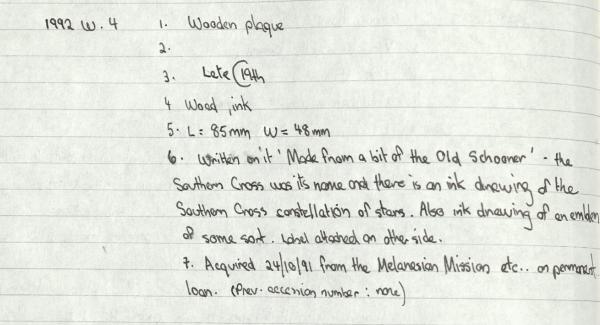 1992 W. 4 1. Wooden plaque
2.
3. Late C19th
4 Wood, ink
5. L = 85mm W = 48mm
6. Written on it 'Made from a bit of the Old Schooner' - the
Southern Cross was its name and there is an ink drawing of the
Southern Cross constellation of stars. Also ink drawing of an emblem
of some sort. Label attached on other side.
7. Acquired 24/10/91 from the Melanesian Mission etc.. on permanent
loan. (Prev. accession number : none)